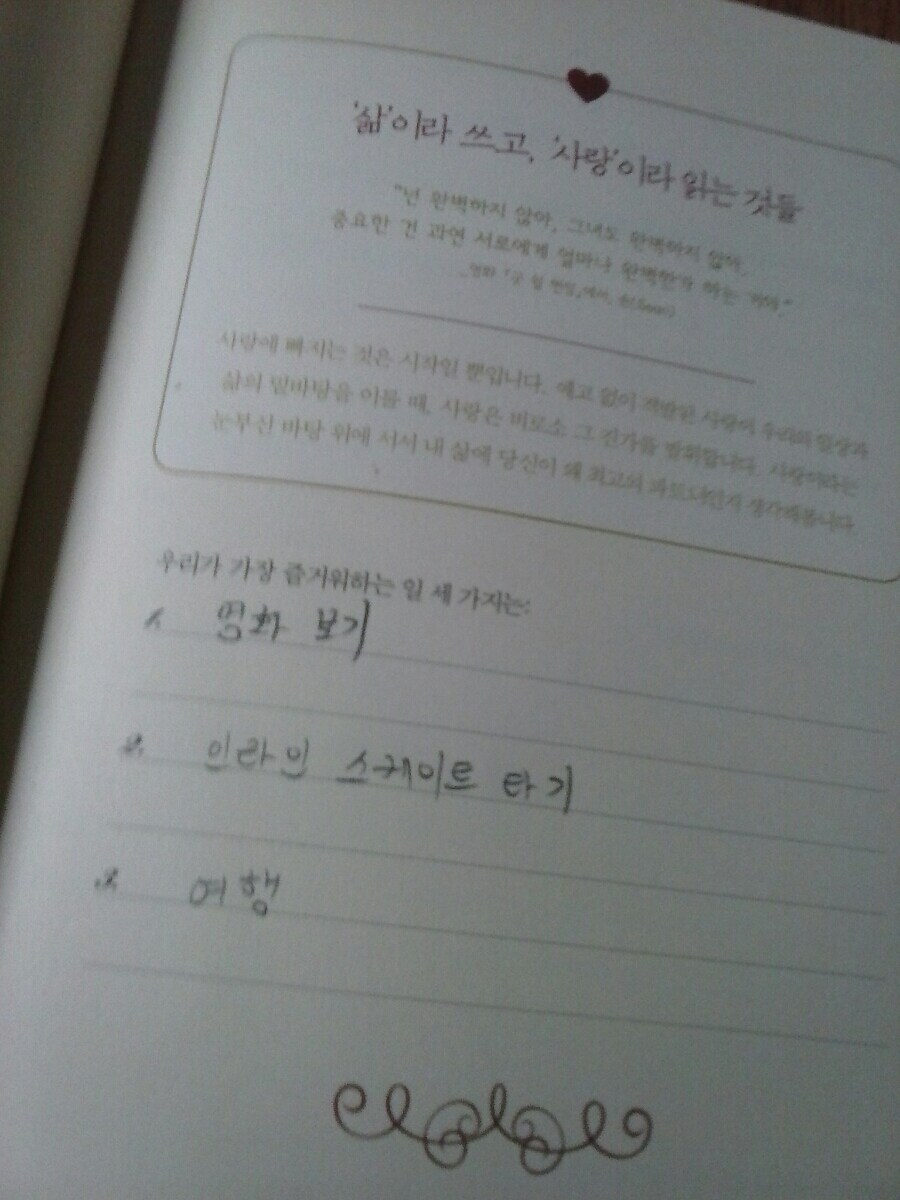 '삶'이라 쓰고, '사랑'이라 읽는 것들
"넌 완벽하지 않아, 그녀도 완벽하지 않아.
중요한 건 과연 서로에게 얼마나 완벽한가 하는 거야."
영화 「굿 윌 헌팅」에서, 숀(Sean)
사랑에 빠지는 것은 시작일 뿐입니다. 예고 없이 격발된 사랑이 우리의 일상과
삶의 밑바탕을 이룰 때, 사랑은 비로소 그 진가를 발휘합니다. 사랑이라는
눈부신 바탕 위에 서서 내 삶에 당신이 왜 최고의 파트너인지 생각해봅니다.
우리가 가장 즐거워하는 일 세 가지는:
1. 영화 보기
2. 인라인 스케이트 타기
3. 여행